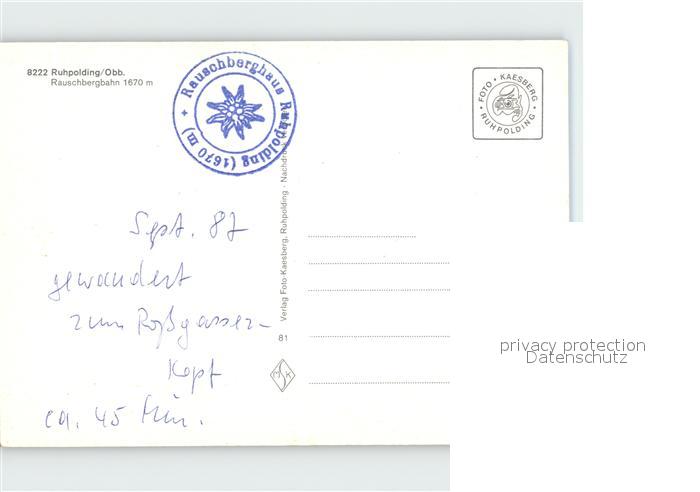 8222 Ruhpolding/Obb.
Rauschbergbahn 1670 m
+ Rauschberghaus Ruhpolding (1670 m)
FOTO • KAESBERG • RUHPOLDING •
Sept. 87
gewandert
zum Roßgasser-
Kopf
ca. 45 Min.
Verlag Foto-Kaesberg, Ruhpolding · Nachdruck
81
M S K
privacy protection
Datenschutz